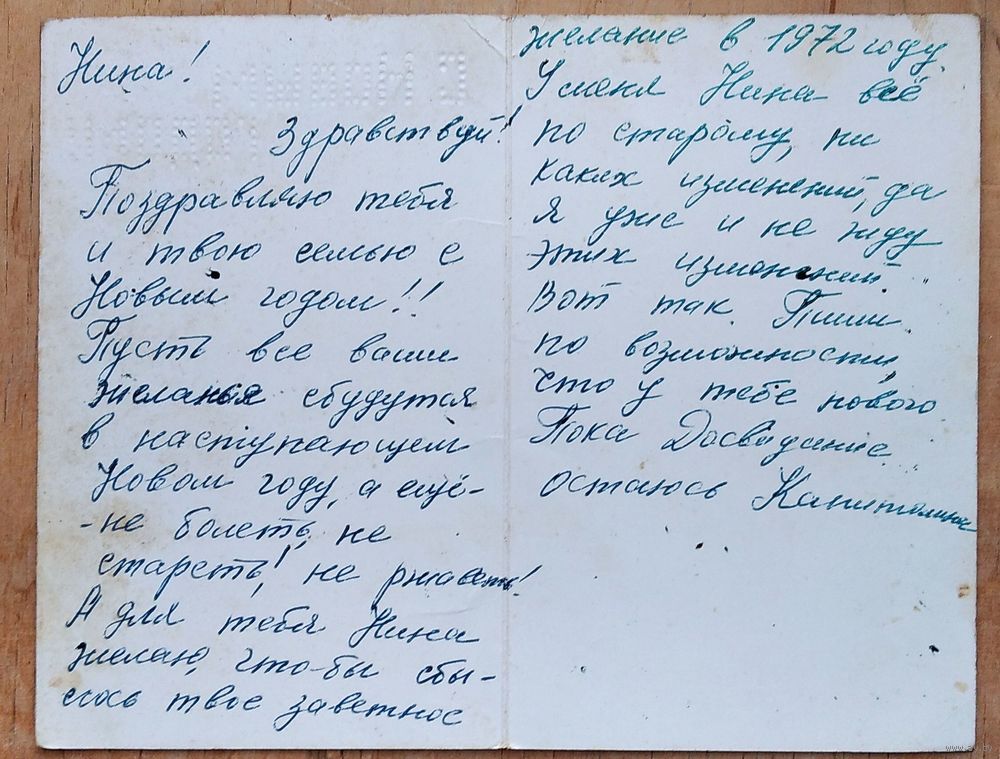 Нина!
Здравствуй!
Поздравляю тебя
и твою семью с
Новым годом!!
Пусть все ваши
желанья сбудутся
в наступающем
Новом году, а ещё-
-не болеть, не
стареть! не ржаветь!
А для тебя Нина
желаю, что-бы сбы-
лось твое заветное
желание в 1972 году.
У меня Нина всё
по старому, ни
каких изменений, да
я уже и не жду
этих изменений.
Вот так. Пиши
по возможности,
что у тебе нового.
Пока Досвидание.
остаюсь Капиталина